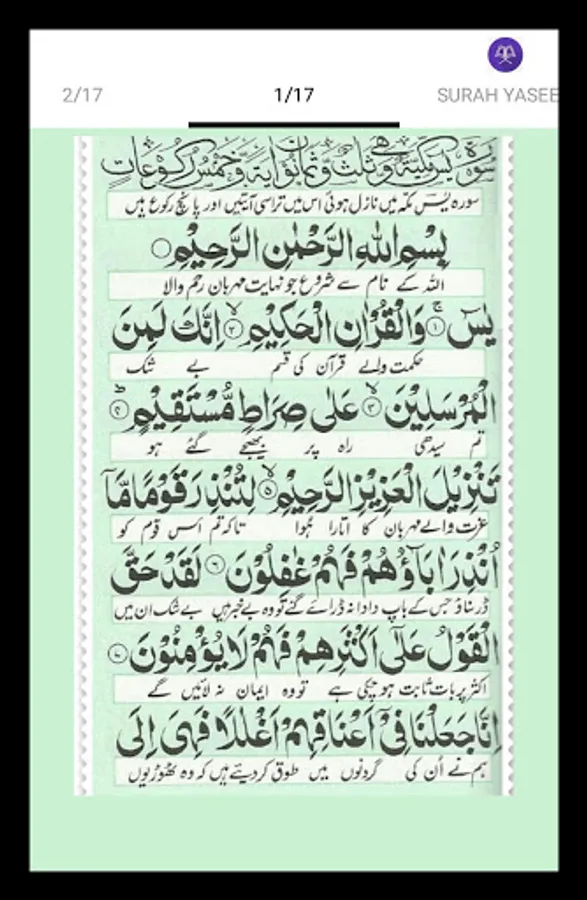 2/17 1/17 SURAH YASEE
سورة يس مكية وهي ثلث وثمانون آية وخمس ركوعات
سورہ یٰسٓ مکہ میں نازل ہوئی اس میں تراسی آیتیں اور پانچ رکوع ہیں
بِسْمِ اللّٰهِ الرَّحْمٰنِ الرَّحِيْمِ
اللہ کے نام سے شروع جو نہایت مہربان رحم والا
يٰسٓ ۚ﴿۱﴾ وَالْقُرْاٰنِ الْحَكِيْمِ ۙ﴿۲﴾ اِنَّكَ لَمِنَ
حکمت والے قرآن کی قسم بے شک
الْمُرْسَلِيْنَ ۙ﴿۳﴾ عَلٰى صِرَاطٍ مُّسْتَقِيْمٍ ؕ﴿۴﴾
تم سیدھی راہ پر بھیجے گئے ہو
تَنْزِيْلَ الْعَزِيْزِ الرَّحِيْمِ ۙ﴿۵﴾ لِتُنْذِرَ قَوْمًا مَّاۤ
عزت والے مہربان کا اتارا ہوا تاکہ تم اس قوم کو
اُنْذِرَ اٰبَآؤُهُمْ فَهُمْ غٰفِلُوْنَ ﴿۶﴾ لَقَدْ حَقَّ
ڈر سناؤ جس کے باپ دادا نہ ڈرائے گئے تو وہ بے خبر ہیں بے شک ان میں
الْقَوْلُ عَلٰٓى اَكْثَرِهِمْ فَهُمْ لَا يُؤْمِنُوْنَ ﴿۷﴾
اکثر پر بات ثابت ہو چکی ہے تو وہ ایمان نہ لائیں گے
اِنَّا جَعَلْنَا فِيْۤ اَعْنَاقِهِمْ اَغْلٰلًا فَهِيَ اِلَى
ہم نے اُن کی گردنوں میں طوق کر دیئے ہیں کہ وہ ٹھوڑیوں